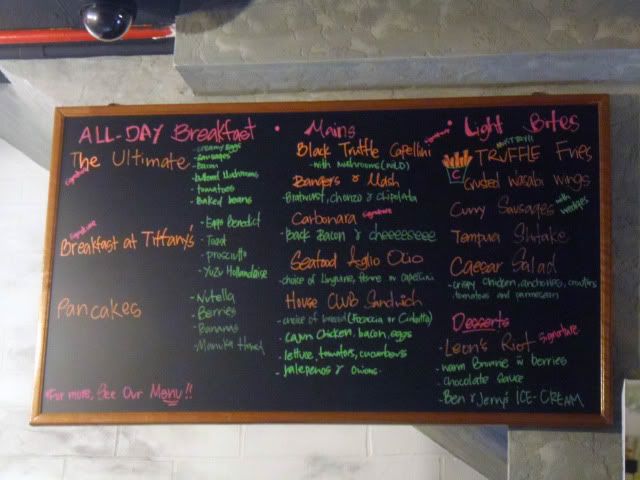 ALL-DAY Breakfast
The Ultimate
Signature
- creamy eggs
- sausages
- Bacon
- buttered Mushrooms
- tomatoes
- Baked beans
Signature
Breakfast at Tiffany's
- Eggs Benedict
- Toast
- prosciutto
- Yuzu Hollandaise
Pancakes
- Nutella
- Berries
- Bananas
- Manuka Honey
*For more, See Our Menu!!
• Mains
Black Truffle Capellini Signature
- with mushrooms (wild)
Bangers & Mash
- Bratwurst, chorizo & chipolata
Carbonara Signature
- Back Bacon & cheeeeseeee
Seafood Aglio Olio
- choice of linguine, or Capellini
House Club Sandwich
- choice of bread (Foccacia or Ciabatta)
- cajun chicken, bacon, eggs
- lettuce, tomatoes, cucumbers
- jalepenos & onions
• Light Bites
MUST TRY!!
C
TRUFFLE Fries
Wasabi Wings
Curry Sausages with wedges
Tempura Shiitake
Caesar Salad
- crispy chicken, anchovies, croutons
tomatoes and parmesan
Desserts
- Leon's Riot Signature
- warm Brownie w berries
- chocolate sauce
- Ben & Jerry's ICE-CREAM